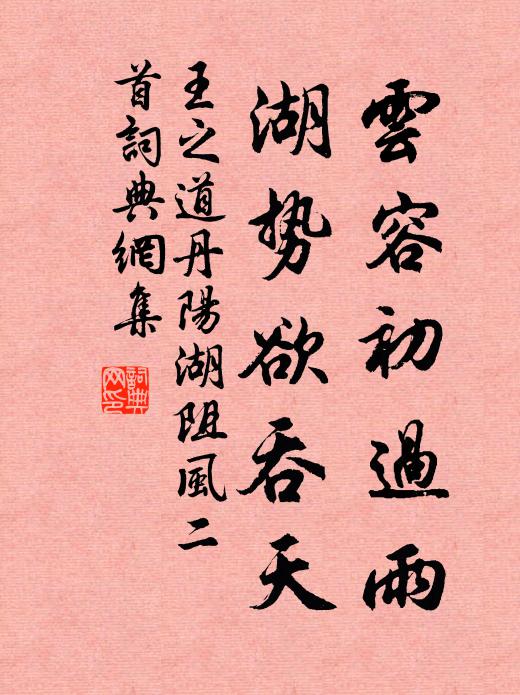 雲容初過雨
湖势欲吞天
王之道丹陽湖阻風二
首詞典網集
詞典
网印